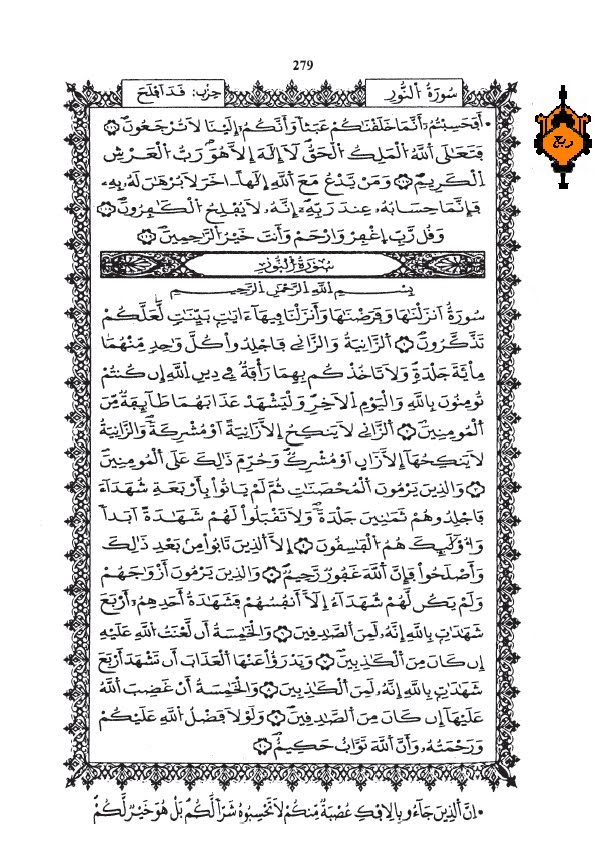 279
سُورَةُ اُلنُّورِ
حِزْب: قَدَ اَفْلَحَ
ربع
• أَفَحَسِبْتُمُۥٓ أَنَّمَا خَلَقْنَٰكُمْ عَبَثاٗ وَأَنَّكُمُۥٓ إِلَيْنَا لَا تُرْجَعُونَۖ ١١٦
فَتَعَٰلَى اَللَّهُ اُلْمَلِكُ اُلْحَقُّ لَآ إِلَٰهَ إِلَّا هُوَۖ رَبُّ اُلْعَرْشِ
اِلْكَرِيمِۖ ١١٧ وَمَنْ يَّدْعُ مَعَ اَللَّهِ إِلَٰهاً ـاخَرَ لَا بُرْهَٰنَ لَهُۥ بِهِۦ
فَإِنَّمَا حِسَابُهُۥ عِندَ رَبِّهِۦٓۖ إِنَّهُۥ لَا يُفْلِحُ اُلْكَٰفِرُونَۖ ١١٨
وَقُل رَّبِّ اِغْفِرْ وَارْحَمْ وَأَنتَ خَيْرُ اُلرَّٰحِمِينَۖ ١١٩
سُورَةُ اُلنُّورِ
بِسْمِ اِللَّهِ اِلرَّحْمَٰنِ اِلرَّحِيمِ
سُورَةٌ اَنزَلْنَٰهَا وَفَرَضْنَٰهَا وَأَنزَلْنَا فِيهَآ ءَايَٰتِۢ بَيِّنَٰتٖ لَّعَلَّكُمْ
تَذَّكَّرُونَۖ ١ اَلزَّانِيَةُ وَالزَّانِے فَاجْلِدُواْ كُلَّ وَٰحِدٖ مِّنْهُمَا
مِاْيَةَ جَلْدَةٖۖ وَلَا تَاخُذْكُم بِهِمَا رَأْفَةٞ فِے دِينِ اِللَّهِ إِن كُنتُمْ
تُومِنُونَ بِاللَّهِ وَالْيَوْمِ اِلَاخِرِۖ وَلْيَشْهَدْ عَذَابَهُمَا طَآئِفَةٞ مِّنَ
اَلْمُومِنِينَۖ ٢ اَلزَّانِے لَا يَنكِحُ إِلَّا زَانِيَةً اَوْ مُشْرِكَةٗۖ وَالزَّانِيَةُ
لَا يَنكِحُهَآ إِلَّا زَانٍ اَوْ مُشْرِكٞۖ وَحُرِّمَ ذَٰلِكَ عَلَى اَلْمُومِنِينَۖ
٣ وَالذِينَ يَرْمُونَ اَلْمُحْصَنَٰتِ ثُمَّ لَمْ يَاتُواْ بِأَرْبَعَةِ شُهَدَآءَ
فَاجْلِدُوهُمْ ثَمَٰنِينَ جَلْدَةٗۖ وَلَا تَقْبَلُواْ لَهُمْ شَهَٰدَةً اَبَداٗۖ
وَأُوْلَٰٓئِكَ هُمُ اُلْفَٰسِقُونَ ٤ إِلَّا اَلذِينَ تَابُواْ مِنۢ بَعْدِ ذَٰلِكَ
وَأَصْلَحُواْ فَإِنَّ اَللَّهَ غَفُورٞ رَّحِيمٞۖ ٥ وَالذِينَ يَرْمُونَ أَزْوَٰجَهُمْ
وَلَمْ يَكُن لَّهُمْ شُهَدَآءُ اِلَّآ أَنفُسُهُمْ فَشَهَٰدَةُ أَحَدِهِمُۥٓ أَرْبَعَ
شَهَٰدَٰتِۢ بِاللَّهِ إِنَّهُۥ لَمِنَ اَلصَّٰدِقِينَۖ ٦ وَالْخَٰمِسَةُ أَن لَّعْنَتُ اُللَّهِ عَلَيْهِ
إِن كَانَ مِنَ اَلْكَٰذِبِينَۖ ٧ وَيَدْرَؤُاْ عَنْهَا اَلْعَذَابَ أَن تَشْهَدَ أَرْبَعَ
شَهَٰدَٰتِۢ بِاللَّهِ إِنَّهُۥ لَمِنَ اَلْكَٰذِبِينَۖ ٨ وَالْخَٰمِسَةُ أَنْ غَضِبَ اَللَّهُ
عَلَيْهَآ إِن كَانَ مِنَ اَلصَّٰدِقِينَۖ ٩ وَلَوْلَا فَضْلُ اُللَّهِ عَلَيْكُمْ
وَرَحْمَتُهُۥ وَأَنَّ اَللَّهَ تَوَّابٌ حَكِيمٌۖ ١٠
• اِنَّ اَلذِينَ جَآءُو بِالِافْكِ عُصْبَةٞ مِّنكُمْ لَا تَحْسِبُوهُ شَرّاٗ لَّكُمۖ بَلْ هُوَ خَيْرٞ لَّكُمْۖ